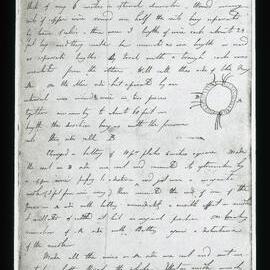 thick of ring 6 inches in external diameter. Wound many
coils of copper wire round one half the coils being separated
by twine & calico - there were 3 lengths of wire each about 24
feet long and they could be connected as one length or used
as separate lengths. By trial with a trough each was
insulated from the other. Will call this side of the ring
A. On the other side but separated by an
interval was wound wire in two pieces
together amounting to about 60 feet in
length the direction being as with the former
coils this side call B
Charged a battery of 10 pr plates 4 inches square. Made
the coil on B side one coil and connected its extremities by
a copper wire passing to a distance and just over a magnetic
needle (3 feet from wire ring) then connected the ends of one of the
pieces on A side with battery immediately a sensible effect on needle
it oscillated & settled at last in original position. On breaking
connection of A side with Battery again a disturbance
of the needle
Made all the wires on A side one coil and sent